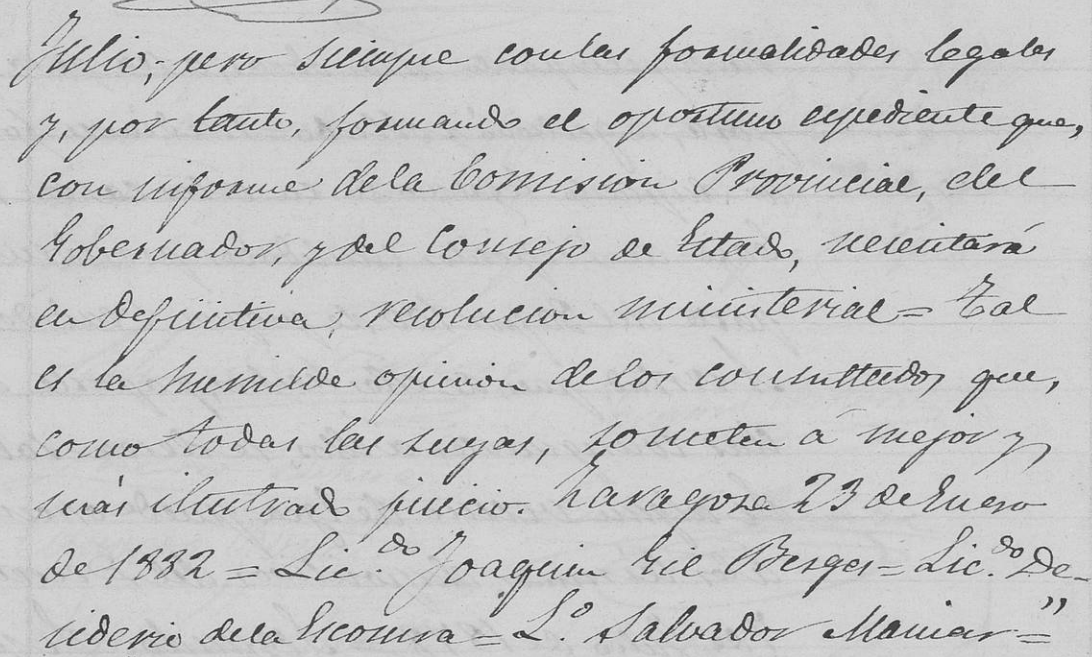 Julio; pero siempre con las formalidades legales
y, por tanto, formando el oportuno expediente que,
con informe de la Comision Provincial, del
Gobernador, y del Consejo de Estado, necesitará
en definitiva, resolucion ministerial = Tal
es la humilde opinion de los consultados que,
como todas las suyas, someten á mejor y
más ilustrado juicio. Zaragoza 23 de Enero
de 1882 = Lic.do Joaquin Gil Berges = Lic.do De-
siderio de la Escosura = L.o Salvador Maniar="